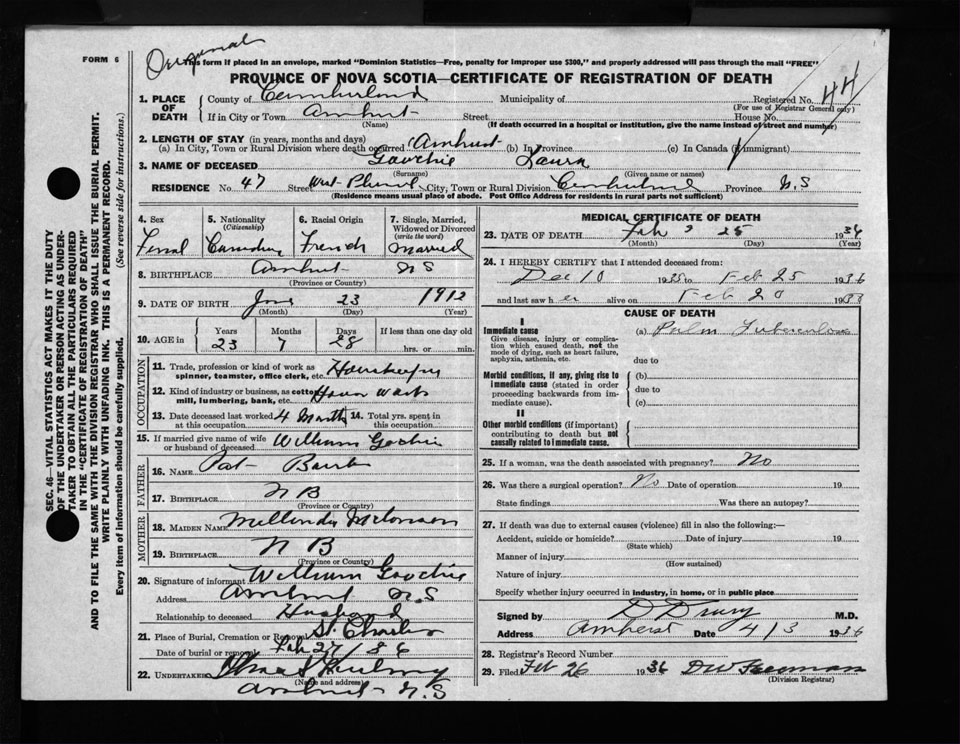 FORM 6
Original
This form if placed in an envelope, marked "Dominion Statistics—Free, penalty for improper use $300," and properly addressed will pass through the mail "FREE"
PROVINCE OF NOVA SCOTIA—CERTIFICATE OF REGISTRATION OF DEATH
1. PLACE OF DEATH
County of Cumberland Municipality of Registered No. 44
(For use of Registrar General only)
If in City or Town Amherst Street House No.
(Name) (If death occurred in a hospital or institution, give the name instead of street and number)
2. LENGTH OF STAY (in years, months and days)
(a) In City, Town or Rural Division where death occurred Amherst (b) In Province (c) In Canada (if immigrant)
3. NAME OF DECEASED Laura
(Surname) (Given name or names)
RESIDENCE No. 47 Street West City, Town or Rural Division Cumberland Province N.S
(Residence means usual place of abode. Post Office Address for residents in rural parts not sufficient)
4. Sex
5. Nationality (Citizenship)
6. Racial Origin
7. Single, Married, Widowed or Divorced (write the word)
Femal Canadian French Married
8. BIRTHPLACE Amherst N S
(Province or Country)
9. DATE OF BIRTH 23 1912
(Month) (Day) (Year)
10. AGE in Years Months Days If less than one day old
23 7 28 hrs. or min.
OCCUPATION
11. Trade, profession or kind of work as spinner, teamster, office clerk, etc. Housekeeping
12. Kind of industry or business, as cotton mill, lumbering, bank, etc. House Work
13. Date deceased last worked at this occupation 4 Months 14. Total yrs. spent in this occupation
15. If married give name of wife or husband of deceased William
FATHER
16. NAME Pat
17. BIRTHPLACE N B
(Province or Country)
MOTHER
18. MAIDEN NAME
19. BIRTHPLACE N B
(Province or Country)
20. Signature of informant William
Address Amherst N S
Relationship to deceased Husband
21. Place of Burial, Cremation or Removal St. Charles
Date of burial or removal Feb 27/36
22. UNDERTAKER
(Name and address)
Amherst N.S
MEDICAL CERTIFICATE OF DEATH
23. DATE OF DEATH Feb 25 193
(Month) (Day) (Year)
24. I HEREBY CERTIFY that I attended deceased from:
Dec 10 1935 to Feb 25 1936
and last saw h er alive on Feb 20 193
CAUSE OF DEATH
I
Immediate cause
Give disease, injury or complication which caused death, not the mode of dying, such as heart failure, asphyxia, asthenia, etc.
(a) Pulm Tuberculosis
due to
Morbid conditions, if any, giving rise to immediate cause (stated in order proceeding backwards from immediate cause).
(b)
due to
(c)
II
Other morbid conditions (if important) contributing to death but not causally related to immediate cause.
25. If a woman, was the death associated with pregnancy? No
26. Was there a surgical operation? No Date of operation 19
State findings Was there an autopsy?
27. If death was due to external causes (violence) fill in also the following:—
Accident, suicide or homicide? Date of injury 19
(State which)
Manner of injury
(How sustained)
Nature of injury
Specify whether injury occurred in industry, in home, or in public place
Signed by D Drury M.D.
Address Amherst Date 4/3 1936
28. Registrar's Record Number
29. Filed Feb 26 1936 Freeman
(Division Registrar)
SEC. 46—VITAL STATISTICS ACT MAKES IT THE DUTY
OF THE UNDERTAKER OR PERSON ACTING AS UNDERTAKER TO OBTAIN ALL THE PARTICULARS REQUIRED
IN THE "CERTIFICATE OF REGISTRATION OF DEATH"
AND TO FILE THE SAME WITH THE DIVISION REGISTRAR WHO SHALL ISSUE THE BURIAL PERMIT.
WRITE PLAINLY WITH UNFADING INK. THIS IS A PERMANENT RECORD.
Every item of information should be carefully supplied. (See reverse side for instructions.)